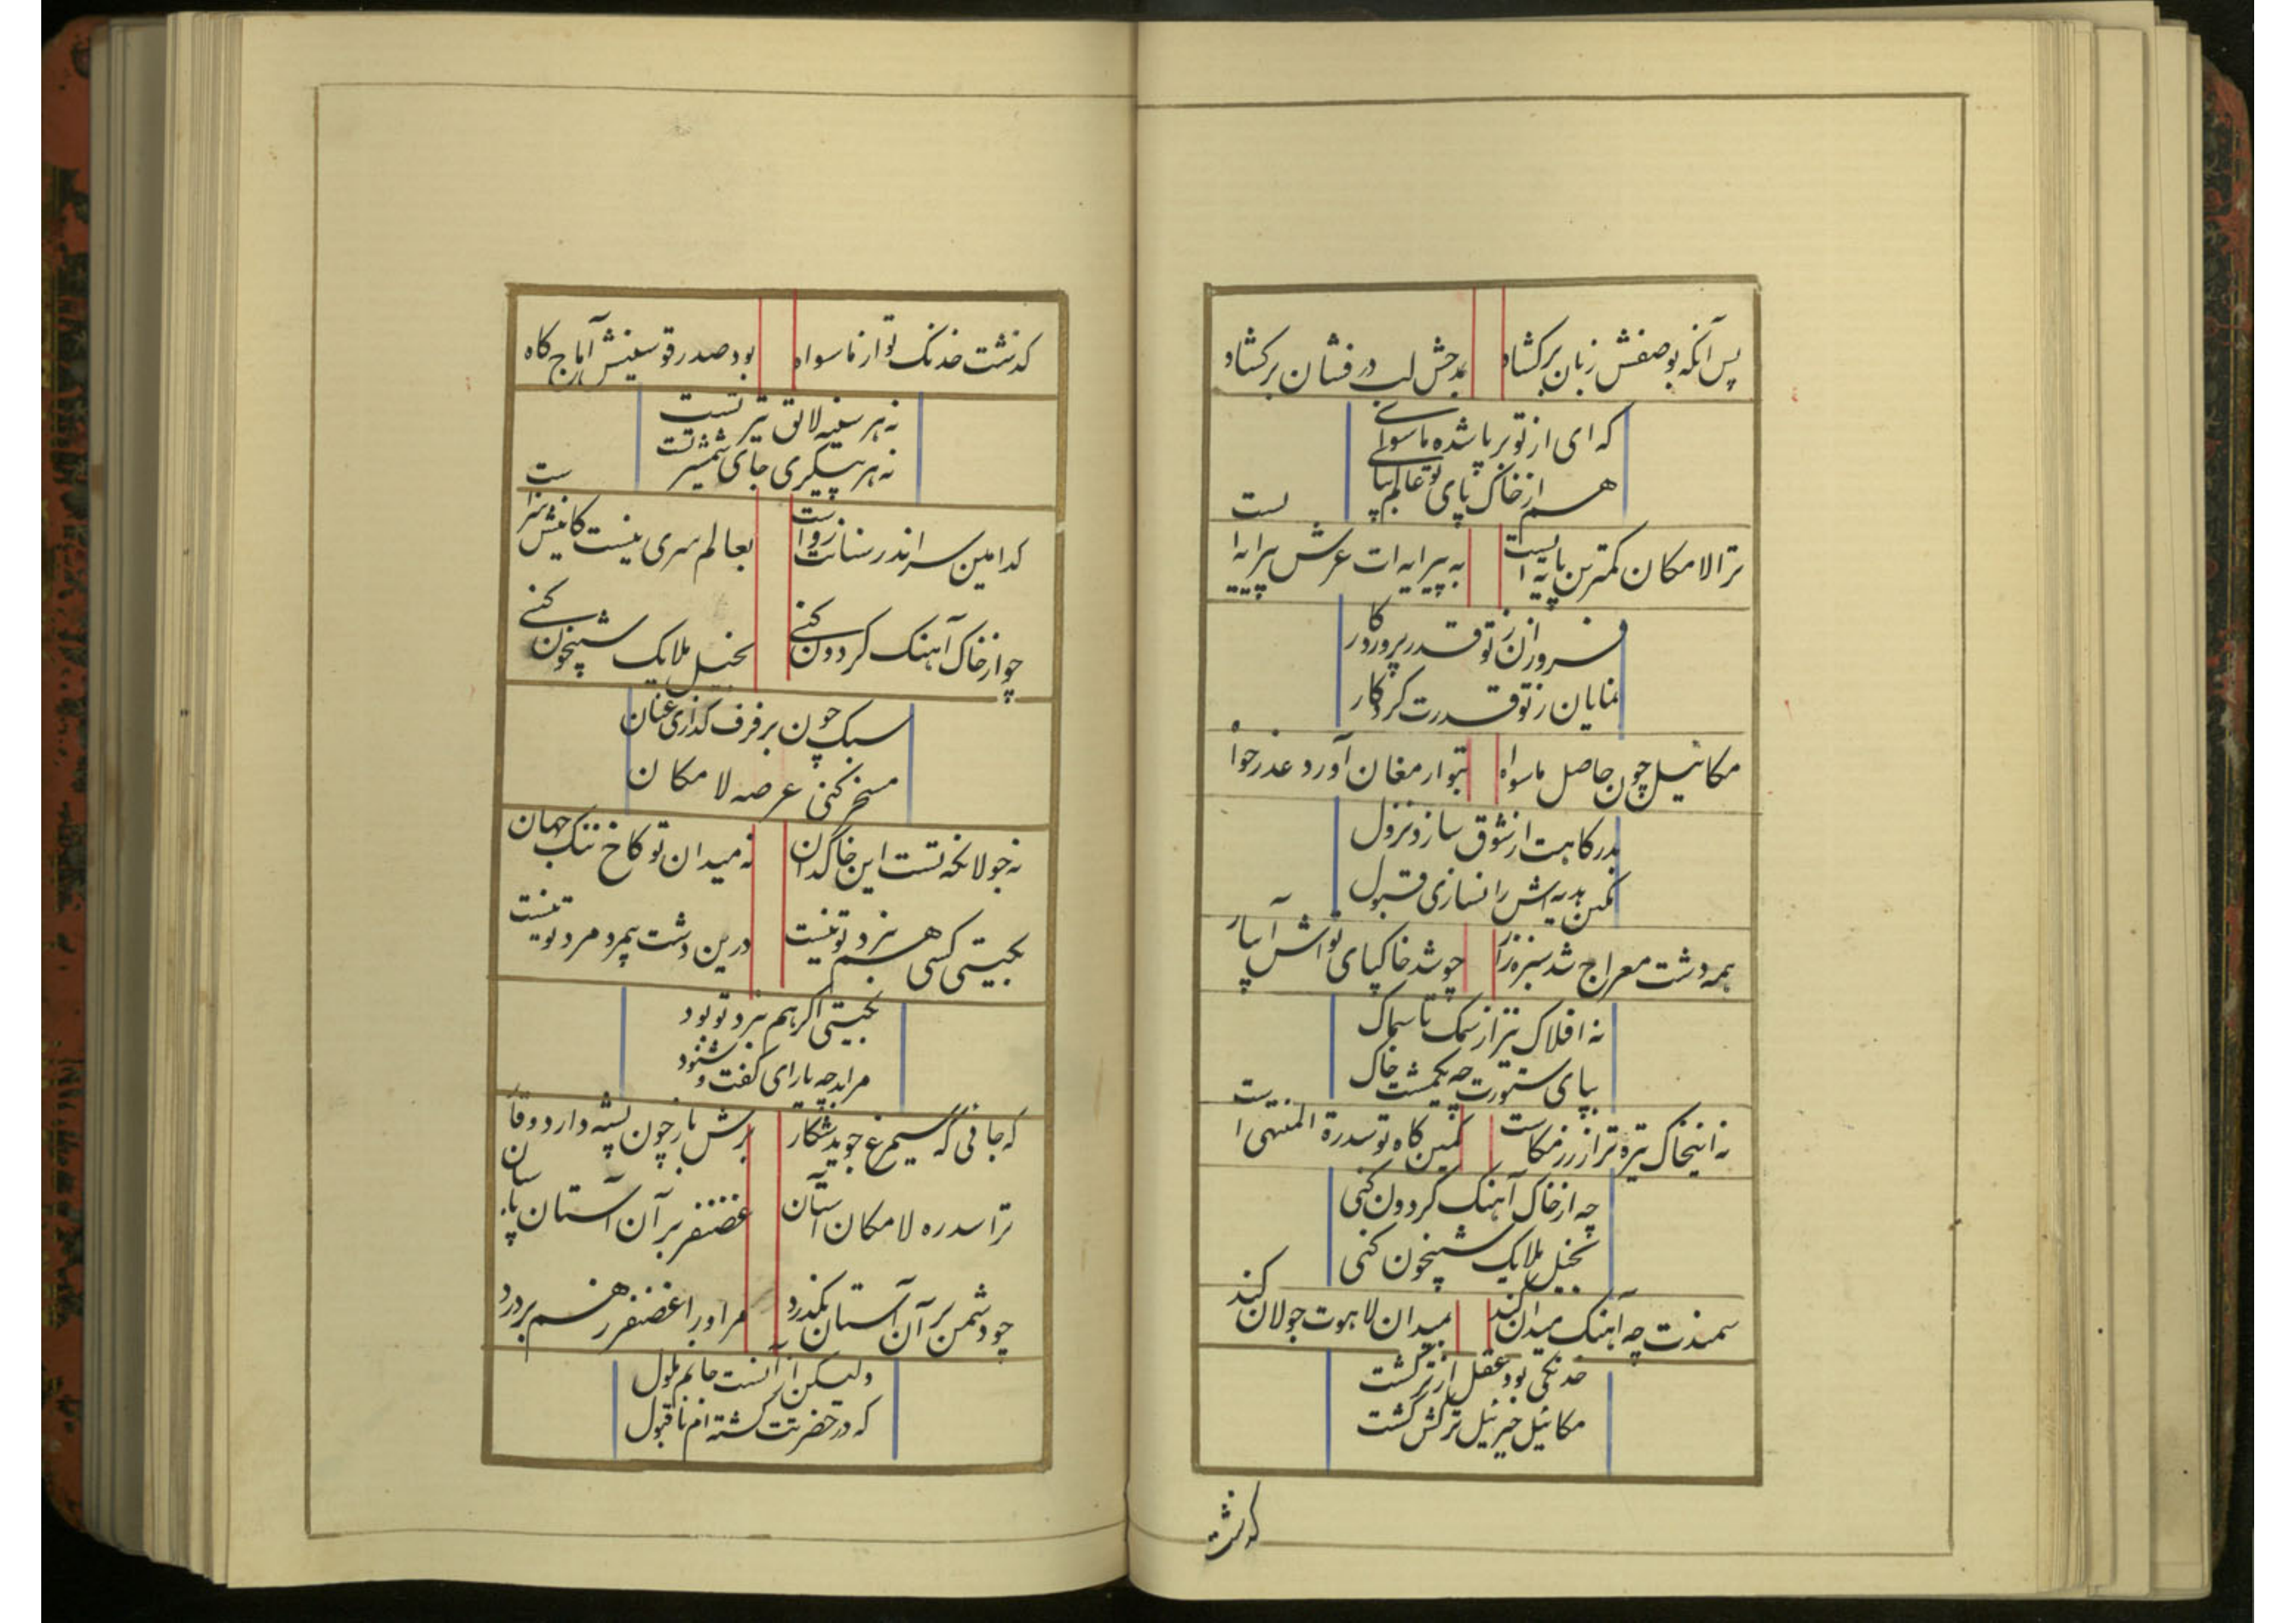 پس آنکه بوصفش زبان برکشاد بمدحش لب درفشان برکشاد
که ای از تو برپا شده ماسوای
هم از خاک پای تو عالم بپا
ترا لامکان کمترین پایه ایست به پیرایه ات عرش پیرایه ایست
فروزان ز تو قدر پروردکار
نمایان ز تو قدرت کردکار
مکائیل چون حاصل ماسواه بتو ارمغان آورد عذرخواه
بدرکاهت از شوق سازد نزول
کمین هدیه اش را نسازی قبول
همه دشت معراج شد سبزه زار چو شد خاکپای تواش آبیار
نه افلاک نیز از سمک تا سماک
بپای ستورت چه یکمشت خاک
نه اینخاک تیره ترا رزمکاست کمین کاه تو سدرة المنتهی است
چه از خاک آهنک کردون کنی
بخیل ملایک شبیخون کنی
سمندت چه آهنک میدان کند بمیدان لاهوت جولان کند
خدنکی بود عقل از ترکشت
مکائیل جبرئیل ترکش کشت
کذشت
کذشت خدنک تو از ماسواه بود صدر قوسینش آماج کاه
نه هر سینه لائق تیر تست
نه هر پیکری جای شمشیر تست
کدامین سر اندر سنانت رواست بعالم سری نیست کانیش سزاست
چو از خاک آهنک کردون کنی بخیل ملایک شبیخون کنی
سبک چون برفرف کذاری عنان
مسخر کنی عرصه لامکان
نه جولانکه تست این خاکدان نه میدان تو کاخ تنک جهان
بکیتی کسی هم نبرد تو نیست درین دشت یمرد مرد تو نیست
بکیتی اکر هم نبرد تو بود
مرا بد چه یارای کفت و شنود
که جائی که سیمرغ جوید شکار برش باز چون پشه دارد وقار
ترا سدره لامکان آستان غضنفر بر آن آستان پاسبان
چو دشمن بر آن آستان بکذرد مر او را غضنفر ز هم بردرد
ولیکن از آنست جانم ملول
که در حضرتت کشته ام ناقبول